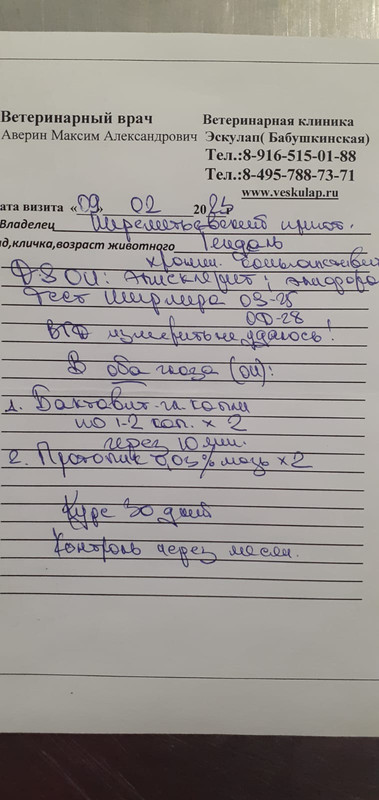 Ветеринарный врач
Ветеринарная клиника
Аверин Максим Александрович
Эскулап( Бабушкинская)
Тел.:8-916-515-01-88
Тел.:8-495-788-73-71
www.veskulap.ru
ата визита «09» 02 20
Владелец Шереметьевский приют.
д,кличка,возраст животного Гендаль
хронич.
DS OU: Эписклерит; эпифора
Тест Ширмера OS-25
OD-28
ВГД измерить не удалось!
В оба глаза (OU):
1. Бактавит-гл. капли
по 1-2 кап. x 2
через 10 мин.
2. Протопик 0,03% мазь x 2
Курс 30 дней
Контроль через месяц.